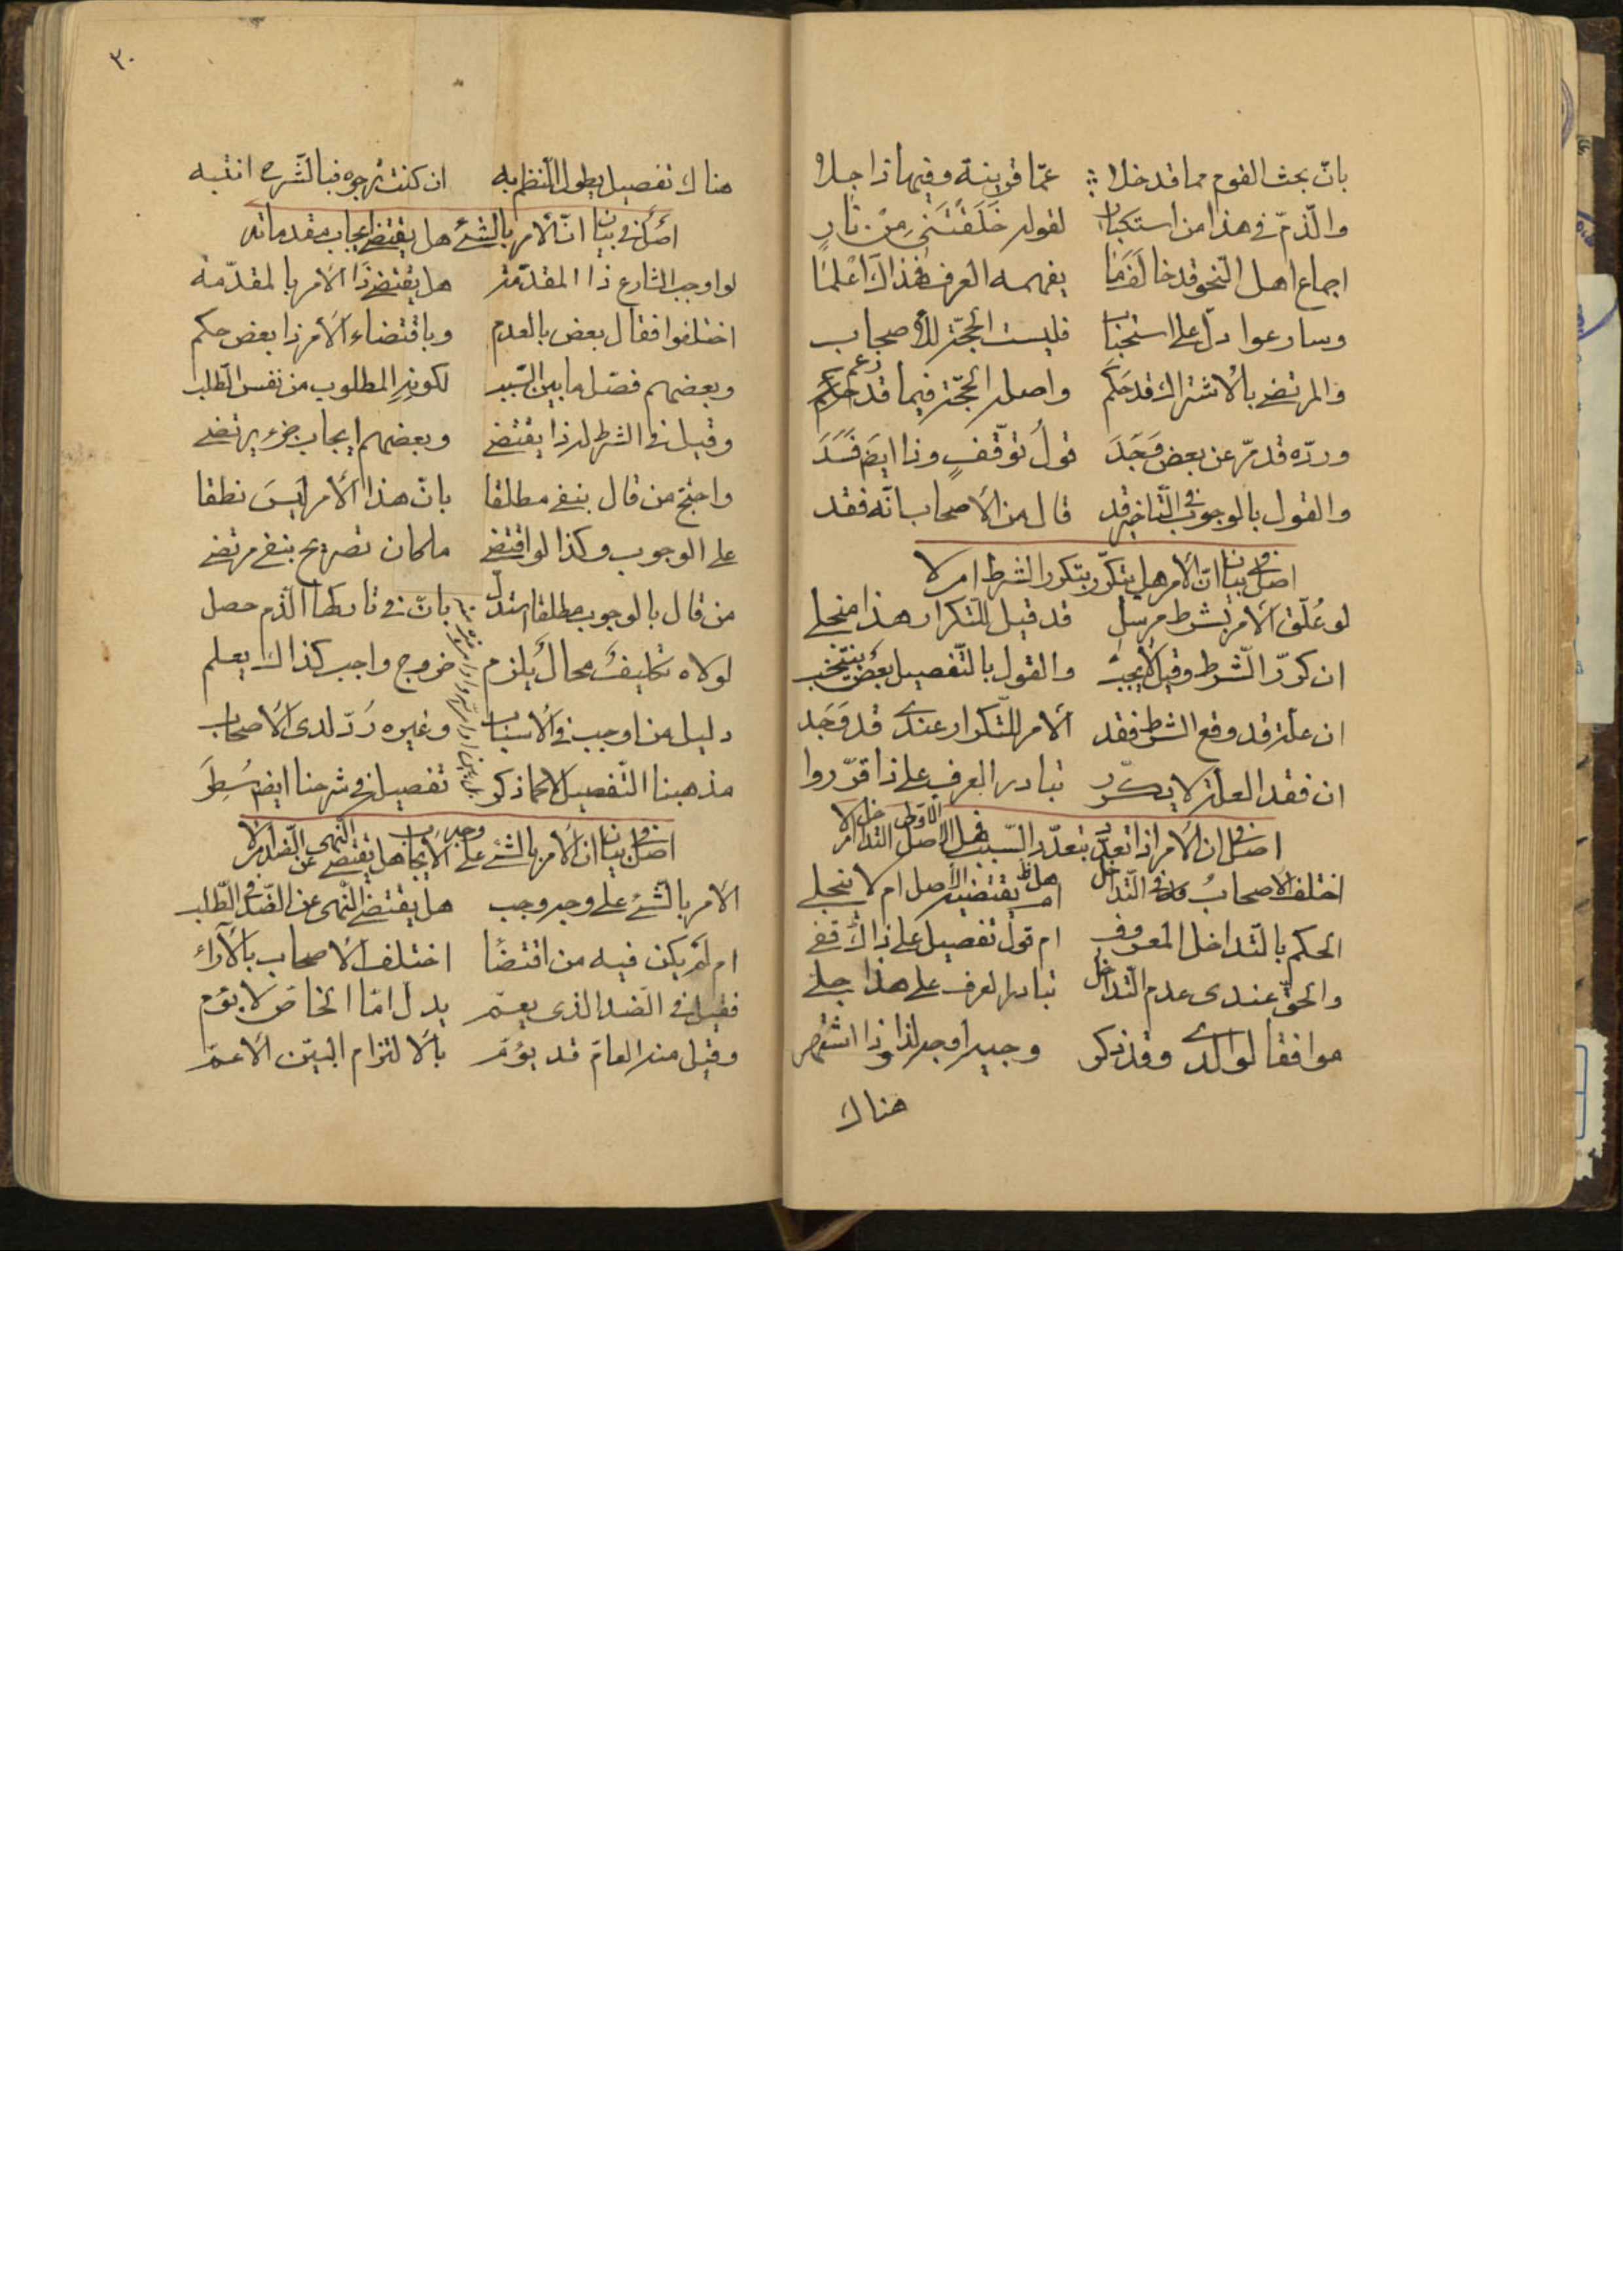 بانّ بحث القوم مما قد خلا عمّا قرينة وفيها ذا جلا
والذّمّ في هذا من استكبار لقوله خَلَقْتَنى مِنْ نارٍ
اجماع اهل النّحو قد خالفنا يفهمه العرف فخذ اك اعلمنا
وسارعوا دلّ على استحباب فليست الحجّة للأصحاب
والمرتضى بالاشتراك قد حكم واصله الحجّة فيما قد زعم
وردّه قد مرّ عن بعض وَجَدَ قول توقّفٍ وذا ايضا فَسَدَ
والقول بالوجوب في التّاخير قد قال من الاصحاب انّه فقد
اصل في بيان انّ الامر هل يتكرّر بتكرر الشرط ام لا
لو عُلّق الامر بشرط مرسل قد قيل للتكرار هذا منجلى
ان كرّر الشّرط وقيل لا يجب والقول بالتّفصيل بعض ينتخب
ان علة قد وقع الشرط فقد الامر للتّكرار عندى قد وَجَد
ان فقد العلة لا يكرّر تبادر العرف على ذا قرّروا
اصل في ان الامر اذا تعدّد بتعدّد السّبب فهل الاصل التداخل ام لا
اختلف الاصحاب في التّداخل هل يقتضيه الاصل ام لا ينجلى
الحكم بالتّداخل المعروف ام قول تفصيل على ذاك قفى
والحقّ عندى عدم التّداخل تبادر العرف على هذا جلى
موافقا لوالدى وقد ذكر وجيه اوجه لذا وذا اشتهر
هناك
٣٠
هناك تفصيل يطول النظم به ان كنت ترجوه فبالشّرح انتبه
اصل في بيان انّ الامر بالشئ هل يقتضى ايجاب مقدماته
لو اوجب الشارع ذا المقدّمة هل يقتضى ذا الامر بالمقدّمة
اختلفوا فقال بعض بالعدم وباقتضاء الامر ذا بعض حكم
وبعضهم فصّل ما بين السّبب لكونه المطلوب من نفس الطّلب
وقيل في الشرط لذا يقتضى وبعضهم ايجاب جزء يرتضى
واحتجّ من قال بنفى مطلقا بانّ هذا الامر ليس نطقا
على الوجوب وكذا لو اقتضى ما كان تصريح بنفى مرتضى
من قال بالوجوب مطلقا استدلّ بانّ في تاركها الذّم حصل
لولاه تكليف محال يلزم خروج واجب كذاك يعلم
دليل من اوجب في الاسباب وغيره رَدّ لدى الاصحاب
مذهبنا التّفصيل لا كما ذكر تفصيله في شرحنا ايضا سُطِرَ
اصل في بيان ان الامر بالشئ على وجه الايجاب هل يقتضى النّهى عن الضّد ام لا
الامر بالشّئ على وجه وجب هل يقتضى النّهى عن الضّد في الطّلب
ام لم يكن فيه من اقتضاء اختلف الاصحاب بالآراء
فقيل في الضّد الذى يعمّ يدلّ امّا الخاصّ لا يؤمّ
وقيل منه العامّ قد يؤمّ بالالتزام البيّن الاعمّ